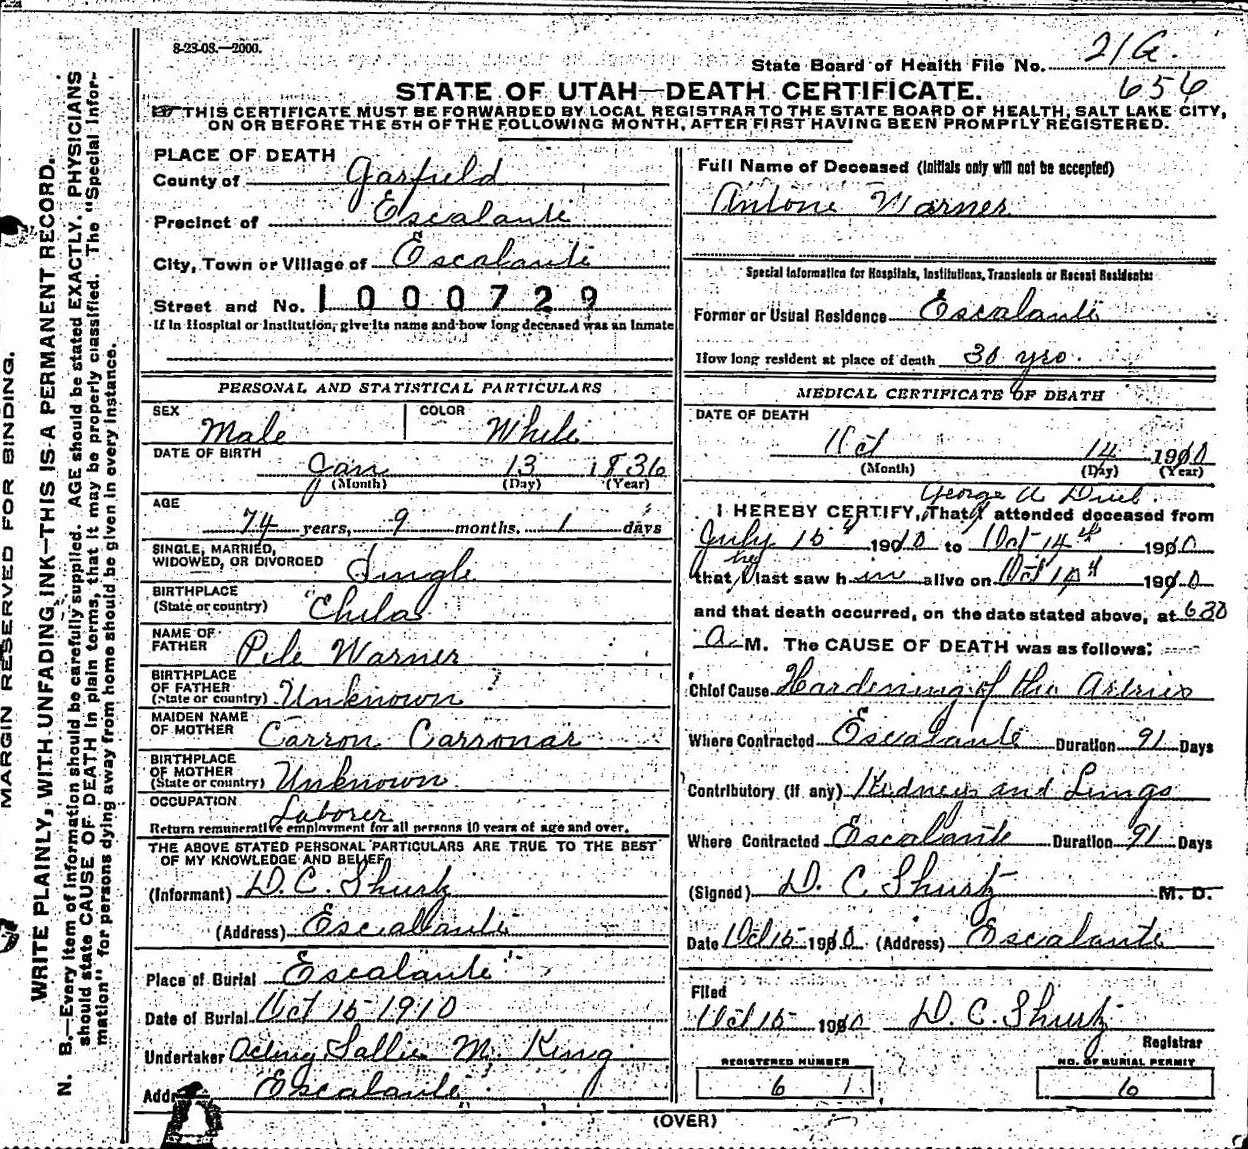 8-23-08.—2000.
State Board of Health File No. 21G
656
STATE OF UTAH—DEATH CERTIFICATE.
THIS CERTIFICATE MUST BE FORWARDED BY LOCAL REGISTRAR TO THE STATE BOARD OF HEALTH, SALT LAKE CITY,
ON OR BEFORE THE 5TH OF THE FOLLOWING MONTH, AFTER FIRST HAVING BEEN PROMPTLY REGISTERED.
MARGIN RESERVED FOR BINDING.
WRITE PLAINLY, WITH UNFADING INK—THIS IS A PERMANENT RECORD.
N. B.—Every item of information should be carefully supplied. AGE should be stated EXACTLY. PHYSICIANS
should state CAUSE OF DEATH in plain terms, that it may be properly classified. The "Special Infor-
mation" for persons dying away from home should be given in every instance.
PLACE OF DEATH
County of Garfield
Precinct of Escalante
City, Town or Village of Escalante
Street and No. 1000729
If in Hospital or Institution, give its name and how long deceased was an inmate
PERSONAL AND STATISTICAL PARTICULARS
SEX Male COLOR White
DATE OF BIRTH Jan 13 1836
(Month) (Day) (Year)
AGE 74 years, 9 months, 1 days
SINGLE, MARRIED,
WIDOWED, OR DIVORCED Single
BIRTHPLACE
(State or country) Chila
NAME OF
FATHER Pile Warner
BIRTHPLACE
OF FATHER
(State or country) Unknown
MAIDEN NAME
OF MOTHER Carron Carronar
BIRTHPLACE
OF MOTHER
(State or country) Unknown
OCCUPATION Laborer
Return remunerative employment for all persons 10 years of age and over.
THE ABOVE STATED PERSONAL PARTICULARS ARE TRUE TO THE BEST
OF MY KNOWLEDGE AND BELIEF
(Informant) D. C. Shurtz
(Address) Escalante
Place of Burial Escalante
Date of Burial Oct 15 1910
Undertaker Acting Sallie M. King
Escalante
Full Name of Deceased (Initials only will not be accepted)
Antone Warner
Special Information for Hospitals, Institutions, Transients or Recent Residents:
Former or Usual Residence Escalante
How long resident at place of death 30 yrs.
MEDICAL CERTIFICATE OF DEATH
DATE OF DEATH
Oct 14 1910
(Month) (Day) (Year)
George A
I HEREBY CERTIFY, That attended deceased from
July 15th 1910 to Oct 14th 1910
he
that I last saw him alive on Oct 14th 1910
and that death occurred, on the date stated above, at 630
a M. The CAUSE OF DEATH was as follows:
Chief Cause Hardening of the Arteries
Where Contracted Escalante Duration 91 Days
Contributory (if any) Kidneys and Lungs
Where Contracted Escalante Duration 91 Days
(Signed) D. C. Shurtz M. D.
Date Oct 15 1910 (Address) Escalante
Filed
Oct 15 1910 D. C. Shurtz
Registrar
REGISTERED NUMBER
6 1
NO. OF BURIAL PERMIT
6
(OVER)